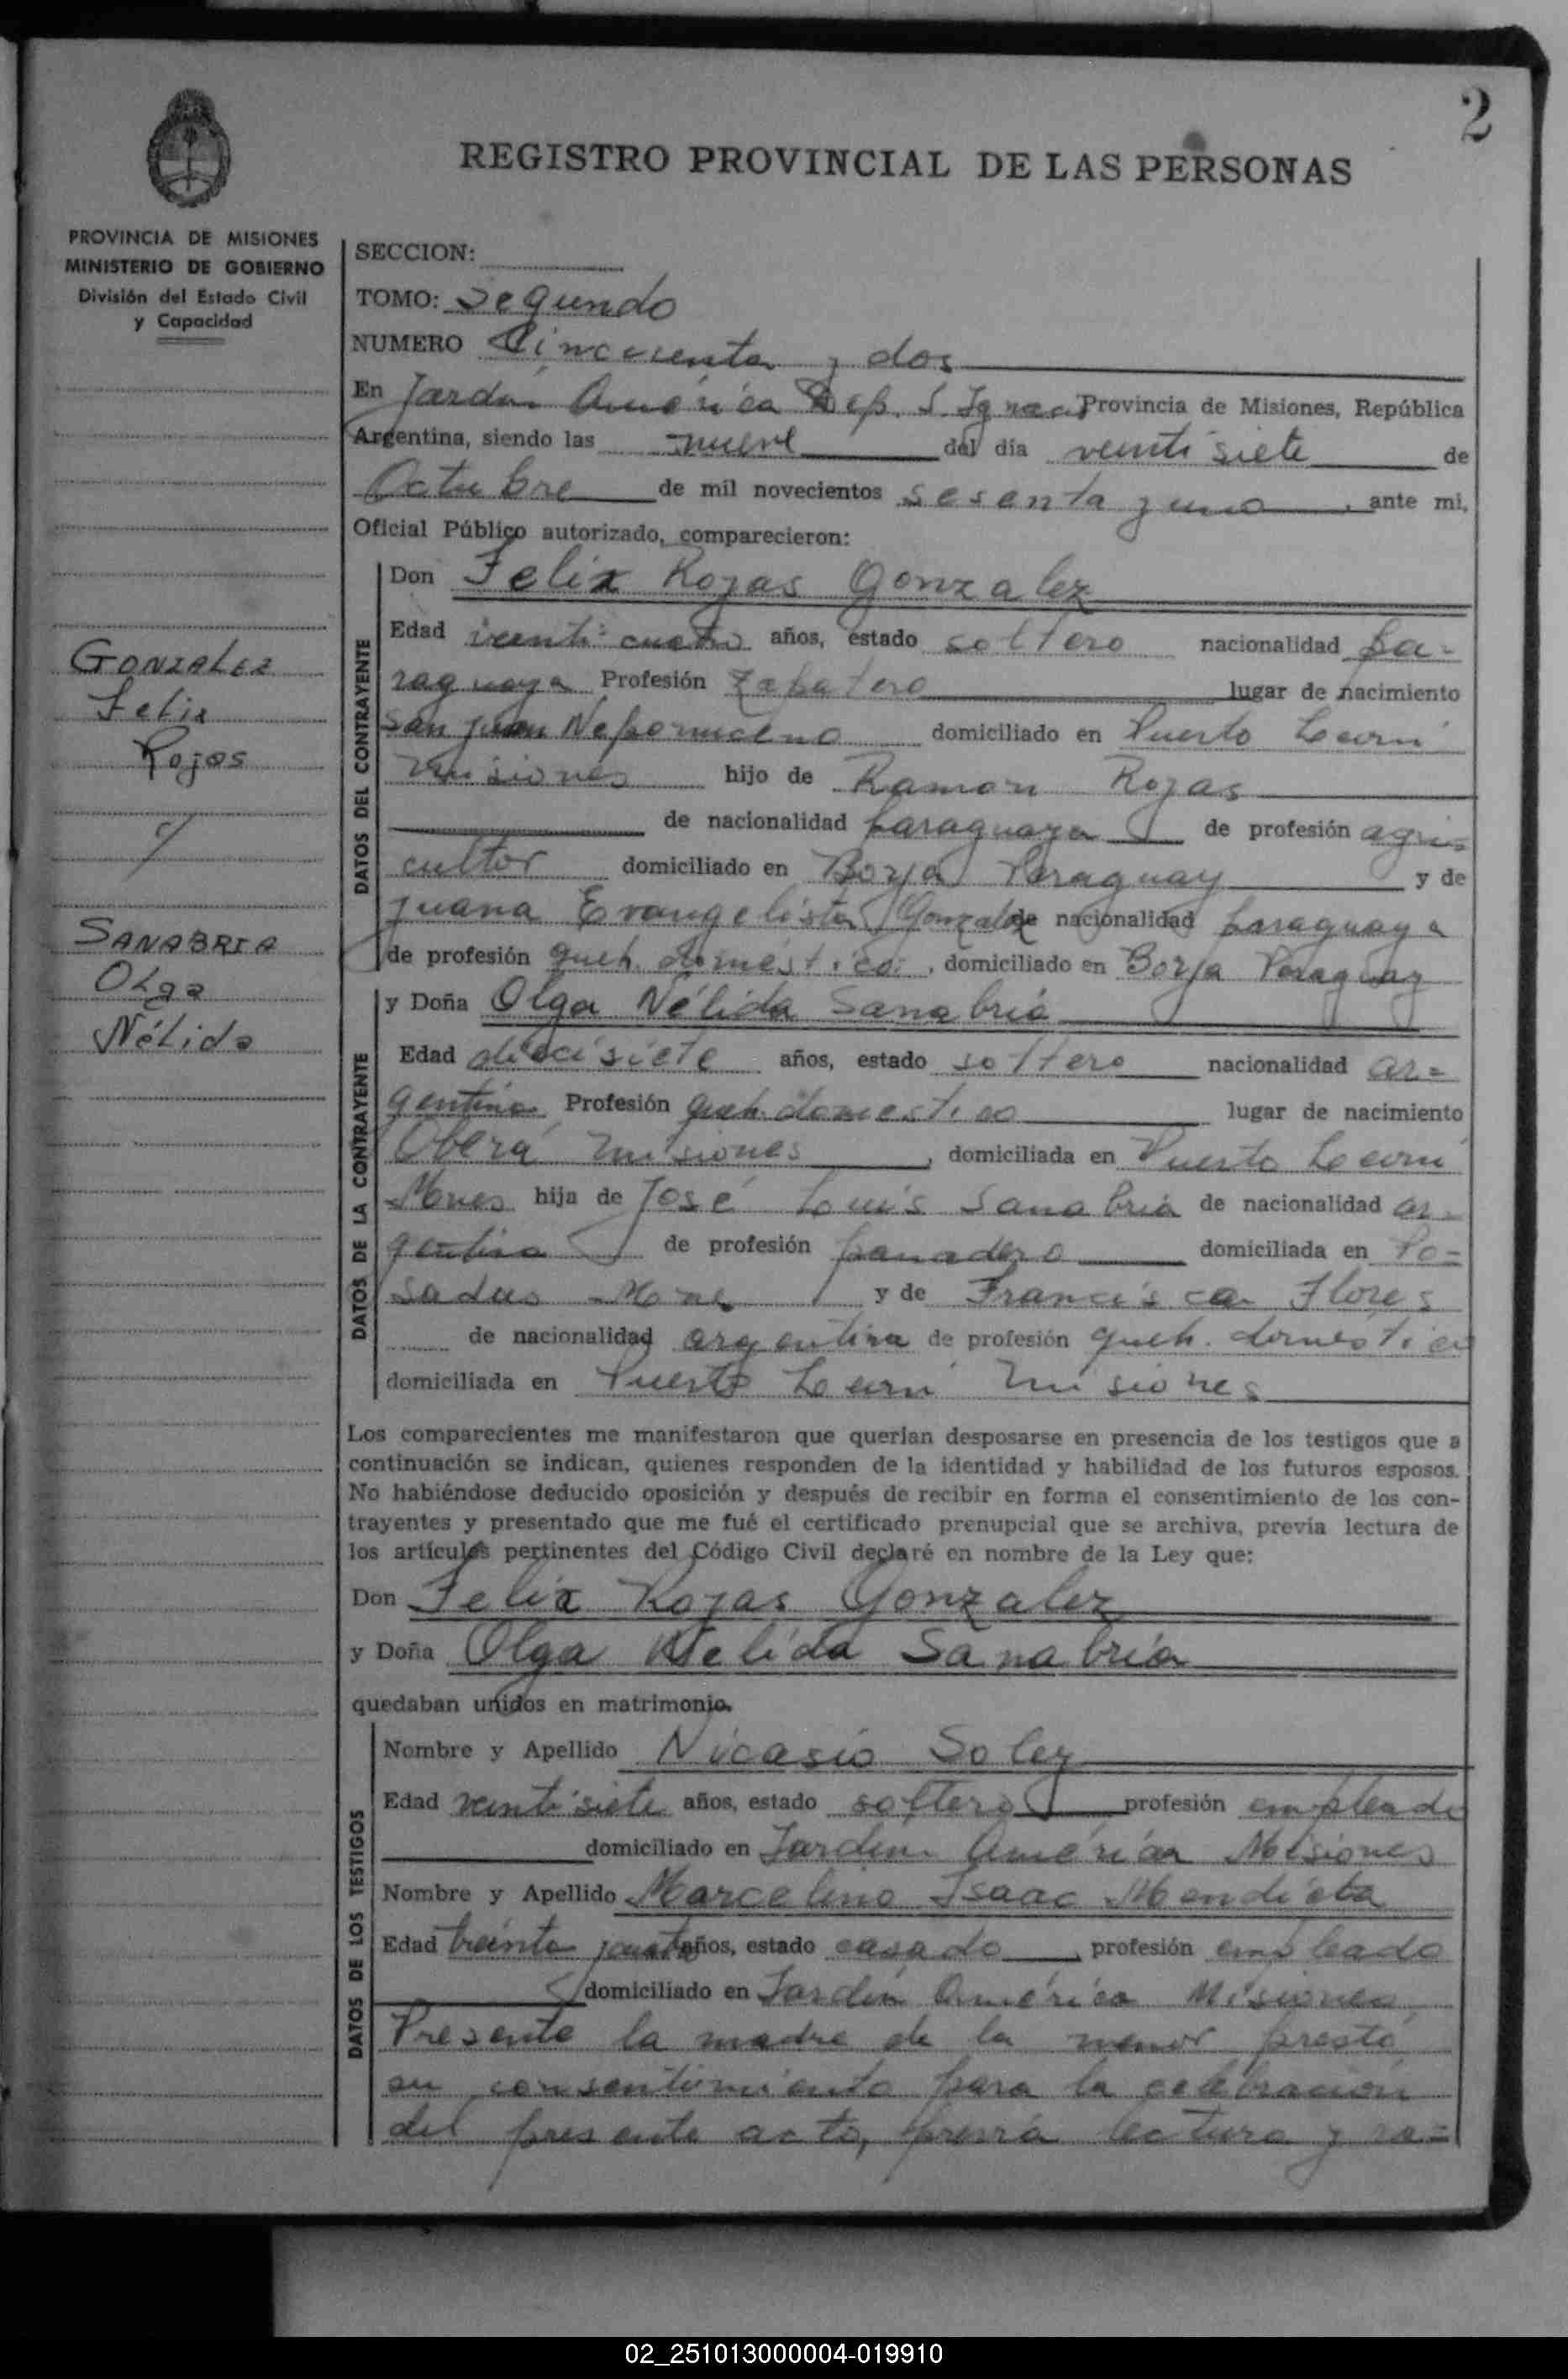 2
REGISTRO PROVINCIAL DE LAS PERSONAS
PROVINCIA DE MISIONES
MINISTERIO DE GOBIERNO
División del Estado Civil
y Capacidad
GONZALEZ
Felix
Rojas
y
SANABRIA
Olga
Nélida
SECCION:
TOMO: Segundo
NUMERO Cincuenta y dos
En Jardín América Dep. S. Ignacio Provincia de Misiones, República
Argentina, siendo las nueve del día veintisiete de
Octubre de mil novecientos sesenta y uno, ante mi,
Oficial Público autorizado, comparecieron:
DATOS DEL CONTRAYENTE
Don Felix Rojas Gonzalez
Edad veinticuatro años, estado soltero nacionalidad pa-
raguaya Profesión Zapatero lugar de nacimiento
San Juan Nepomuceno domiciliado en Puerto Leoni
Misiones hijo de Ramon Rojas
de nacionalidad paraguaya de profesión agri-
cultor domiciliado en Borja Paraguay y de
Juana Evangelista Gonzalez de nacionalidad paraguaya
de profesión queh. doméstico, domiciliado en Borja Paraguay
DATOS DE LA CONTRAYENTE
y Doña Olga Nélida Sanabria
Edad diecisiete años, estado soltero nacionalidad ar-
gentina Profesión queh. domestico lugar de nacimiento
Oberá Misiones, domiciliada en Puerto Leoni
Mnes hija de José Luis Sanabria de nacionalidad ar-
gentina de profesión panadero domiciliada en Po-
sadas Mnes y de Francisca Flores
de nacionalidad argentina de profesión queh. doméstico
domiciliada en Puerto Leoni Misiones
Los comparecientes me manifestaron que querían desposarse en presencia de los testigos que a
continuación se indican, quienes responden de la identidad y habilidad de los futuros esposos.
No habiéndose deducido oposición y después de recibir en forma el consentimiento de los con-
trayentes y presentado que me fué el certificado prenupcial que se archiva, previa lectura de
los artículos pertinentes del Código Civil declaré en nombre de la Ley que:
Don Felix Rojas Gonzalez
y Doña Olga Nelida Sanabria
quedaban unidos en matrimonio.
DATOS DE LOS TESTIGOS
Nombre y Apellido Nicasio Soley
Edad veintisiete años, estado soltero profesión empleado
domiciliado en Jardín América Misiones
Nombre y Apellido Marcelino Isaac Mendieta
Edad treinta y cuatro años, estado casado, profesión empleado
domiciliado en Jardín América Misiones
Presente la madre de la menor prestó
su consentimiento para la celebración
del presente acto, previa lectura y ra-
02_251013000004-019910